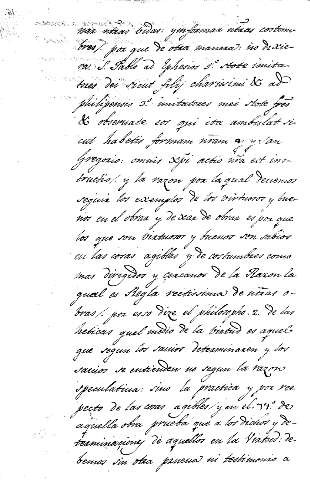 nar nr̃as bidas: y ynformar nr̃as costum
bres/. por que de otra manera: no dexie
ra: S. Pablo ad Ephesios 5º. stote imita
tores dei sicut filij charissimi & ad
philipenses 3º. imitatores mei stote fr̃es
& obseruate eos qui ita ambulāt si
cut habetis formam nr̃am y san
Gregorio: omnis xp̃i actio nr̃a est ins
tructio/. y la razon por la qual deuemos
seguir los exemplos de los virtuosos y bue
nos en el obrar y dexar de obrar es por que
los que son virtuosos y buenos son sabios
en las cosas agibles y de costumbres como
mas dirigidos y cercanos de la Razon la
qual es Regla rectissima de nr̃as o
bras/. por esso dize el philosopho. 2. de las
heticas quel medio de la birtud es aquel
que segun los sauios determinaren y los
sauios se entienden no segun la razon
speculatiua: sino la practica y por res
pecto de las cosas agibles/. y en el 11. de
aquella obra prueba que a los dichos y de
terminaciones de aquellos en la virtud: de
bemos sin otra prueua ni testimonio a